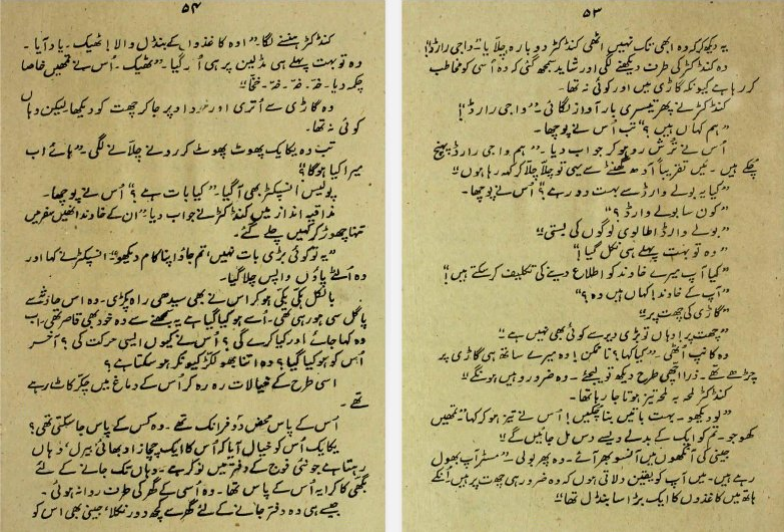 ۵۳
یہ دیکھ کر کہ وہ ابھی تک نہیں اٹھی کنڈکٹر دوبارہ چلایا "واجی رارڈ!"
وہ کنڈکٹر کی طرف دیکھنے لگی اور شاید سمجھ گئی کہ وہ اُسی کو مخاطب
کر رہا ہے کیونکہ گاڑی میں اور کوئی نہ تھا۔
کنڈکٹر نے پھر تیسری بار آواز لگائی "واجی رارڈ"!
"ہم کہاں ہیں؟" تب اُس نے پوچھا۔
اُس نے تُرش رو ہو کر جواب دیا۔ "ہم واجی رارڈ پہنچ
چکے ہیں۔ میں تقریباً آدھ گھنٹے سے یہی تو چِلّا چِلّا کر کہہ رہا ہوں"
"کیا یہ بولے وارڈ سے بہت دور ہے؟" اُس نے پوچھا۔
"کون سا بولے وارڈ؟"
"بولے وارڈ اطالوی لوگوں کی بستی"
"وہ تو بہت پہلے ہی نکل گیا!"
"کیا آپ میرے خاوند کو اطلاع دینے کی تکلیف کر سکتے ہیں!"
"آپ کے خاوند! کہاں ہیں وہ؟"
"گاڑی کی چھت پر"
"چھت پر! وہاں تو بڑی دیر سے کوئی بھی نہیں ہے"
وہ کانپ اُٹھی۔ "کیا کہا؟ ناممکن! وہ میرے ساتھ ہی گاڑی پر
چڑھے تھے۔ ذرا اچھی طرح دیکھ تو لیجئے۔ وہ ضرور وہیں ہونگے"
کنڈکٹر لمحہ بہ لمحہ تیز ہوتا جا رہا تھا۔
"لو دیکھو۔ بہت باتیں بنا چکیں! اُس نے تیز ہو کر کہا "تمھیں
کھو جو۔ تم کو ایک کے بدلے ویسے دس مل جائیں گے"
جینی کی آنکھوں میں آنسو بھر آئے۔ وہ پھر بولی۔ "مسٹر آپ بھول
رہے ہیں۔ میں آپ کو یقین دلاتی ہوں کہ وہ ضرور ہی چھت پر ہیں! اُنکے
ہاتھ میں کاغذوں کا ایک بڑا سا بنڈل تھا"
۵۴
کنڈکٹر ہنسنے لگا۔ "اوہ کاغذوں کے بنڈل والا! ٹھیک۔ یاد آیا۔
وہ تو بہت پہلے ہی مڈلین پر ہی اُتر گیا۔ "ٹھیک۔ اُس نے تمھیں خاصا
چکمہ دیا۔ خہ۔ خہ۔ خہ۔ خہ!"
وہ گاڑی سے اُتری اور خود اوپر جا کر چھت کو دیکھا لیکن وہاں
کوئی نہ تھا۔
تب وہ یکایک پھوٹ پھوٹ کر رونے چلّانے لگی۔ "ہائے اب
میرا کیا ہوگا؟"
پولیس انسپکٹر بھی آ گیا۔ "کیا بات ہے؟" اُس نے پوچھا۔
مذاقیہ انداز میں کنڈکٹر نے جواب دیا "ان کے خاوند انھیں سفر میں
تنہا چھوڑ کر کہیں چلے گئے۔
"یہ تو کوئی بڑی بات نہیں، تم جاؤ اپنا کام دیکھو" انسپکٹر نے کہا اور
وہ اُلٹے پاؤں واپس چلا گیا۔
بالکل ہکّی بکّی ہو کر اس نے بھی سیدھی راہ پکڑی۔ وہ اس حادثے سے
پاگل سی ہو رہی تھی۔ اُسے ہو کیا گیا ہے یہ سمجھنے سے وہ خود بھی قاصر تھی۔ اب
وہ کہاں جائے اور کیا کرے گی؟ اُس نے کیوں ایسی حرکت کی؟ آخر
اُس کو ہو کیا گیا؟ وہ اتنا بھولکڑ کیونکر ہو سکتا ہے؟
اسی طرح کے خیالات رہ رہ کر اُس کے دماغ میں چکر کاٹ رہے
تھے۔
اُس کے پاس محض دو فرانک تھے۔ وہ کس کے پاس جا سکتی تھی؟
یکایک اُس کو خیال آیا کہ اُس کا ایک چچازاد بھائی بیرل، وہاں
رہتا ہے جو نئی فوج کے دفتر میں نوکر ہے۔ وہاں تک جانے کے لئے
بگھی کا کرایہ اُس کے پاس تھا۔ وہ اُسی کے گھر کی طرف روانہ ہوئی۔
جیسے ہی وہ دفتر جانے کے لئے گھر سے کچھ دور نکلا، جینی بھی اس کو